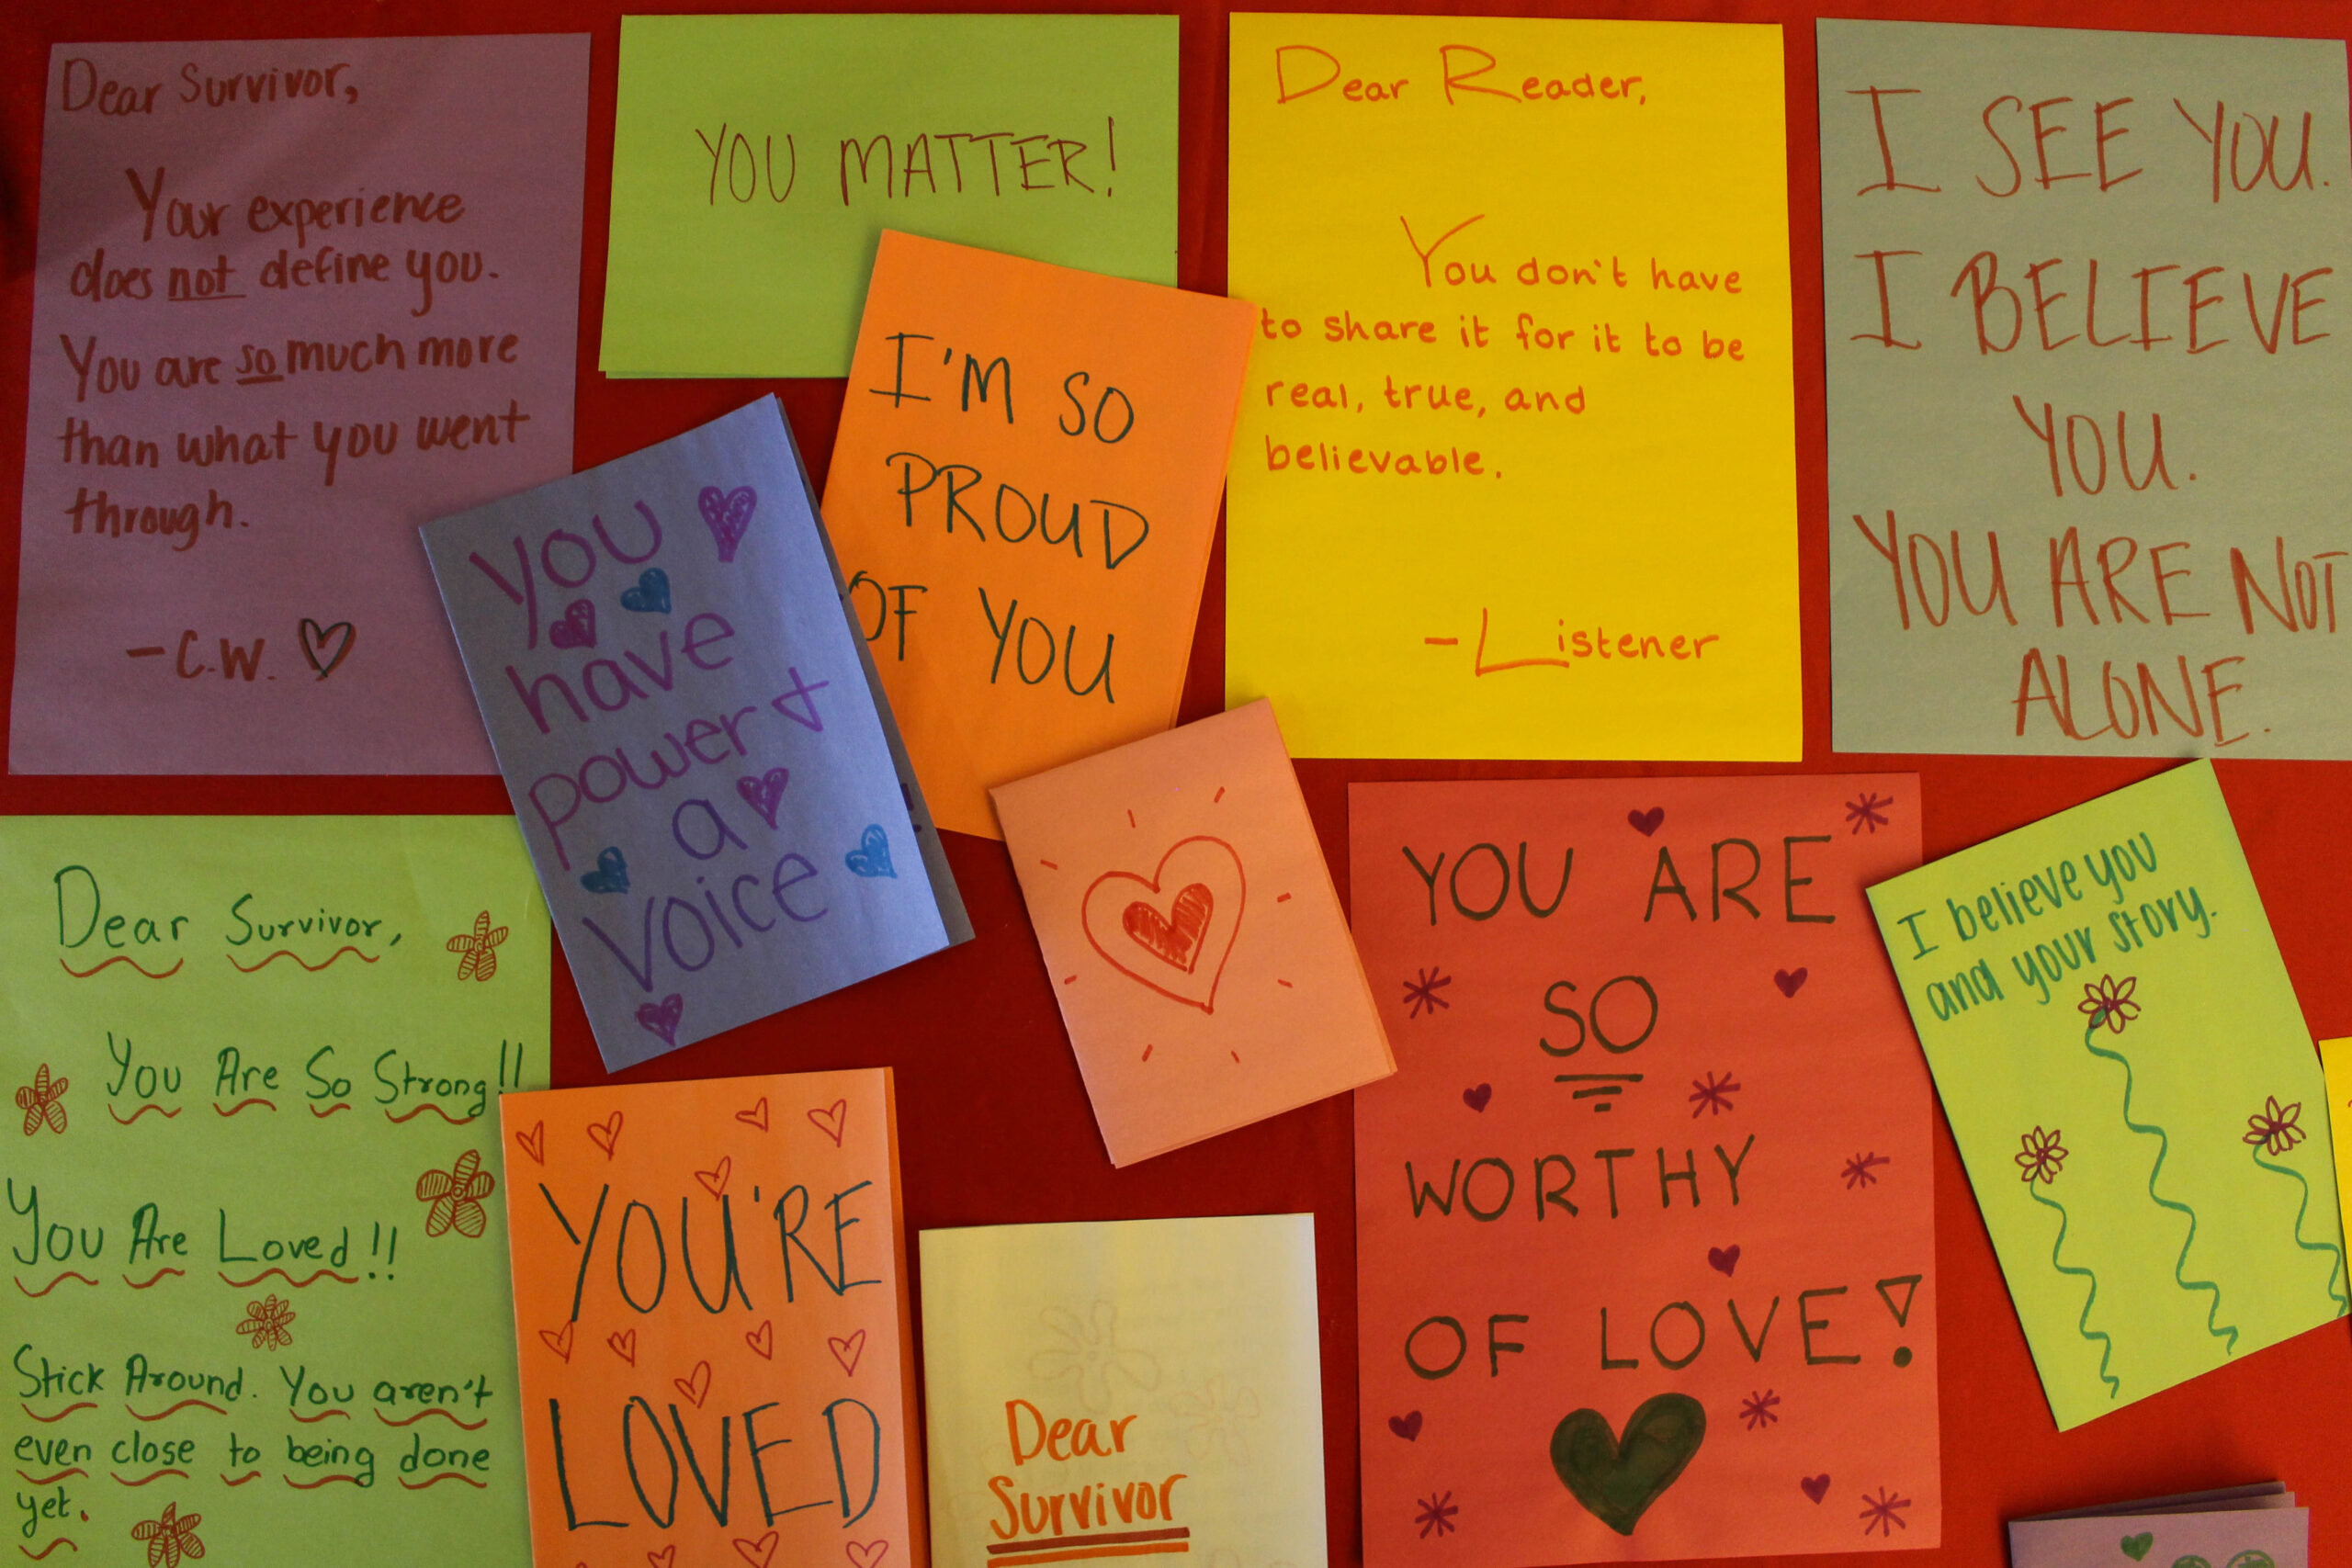 Dear Survivor,
Your experience
does not define you.
You are so much more
than what you went
through.
- C.W.
YOU MATTER!
I'M SO
PROUD
OF YOU
Dear Reader,
You don't have
to share it for it to be
real, true, and
believable.
- Listener
I SEE YOU.
I BELIEVE
YOU.
YOU ARE NOT
ALONE.
You
have
power +
a
voice
Dear Survivor,
You Are So Strong!!
You Are Loved!!
Stick Around. You aren't
even close to being done
yet.
YOU'RE
LOVED
Dear
Survivor
YOU ARE
SO
WORTHY
OF LOVE!
I believe you
and your story.